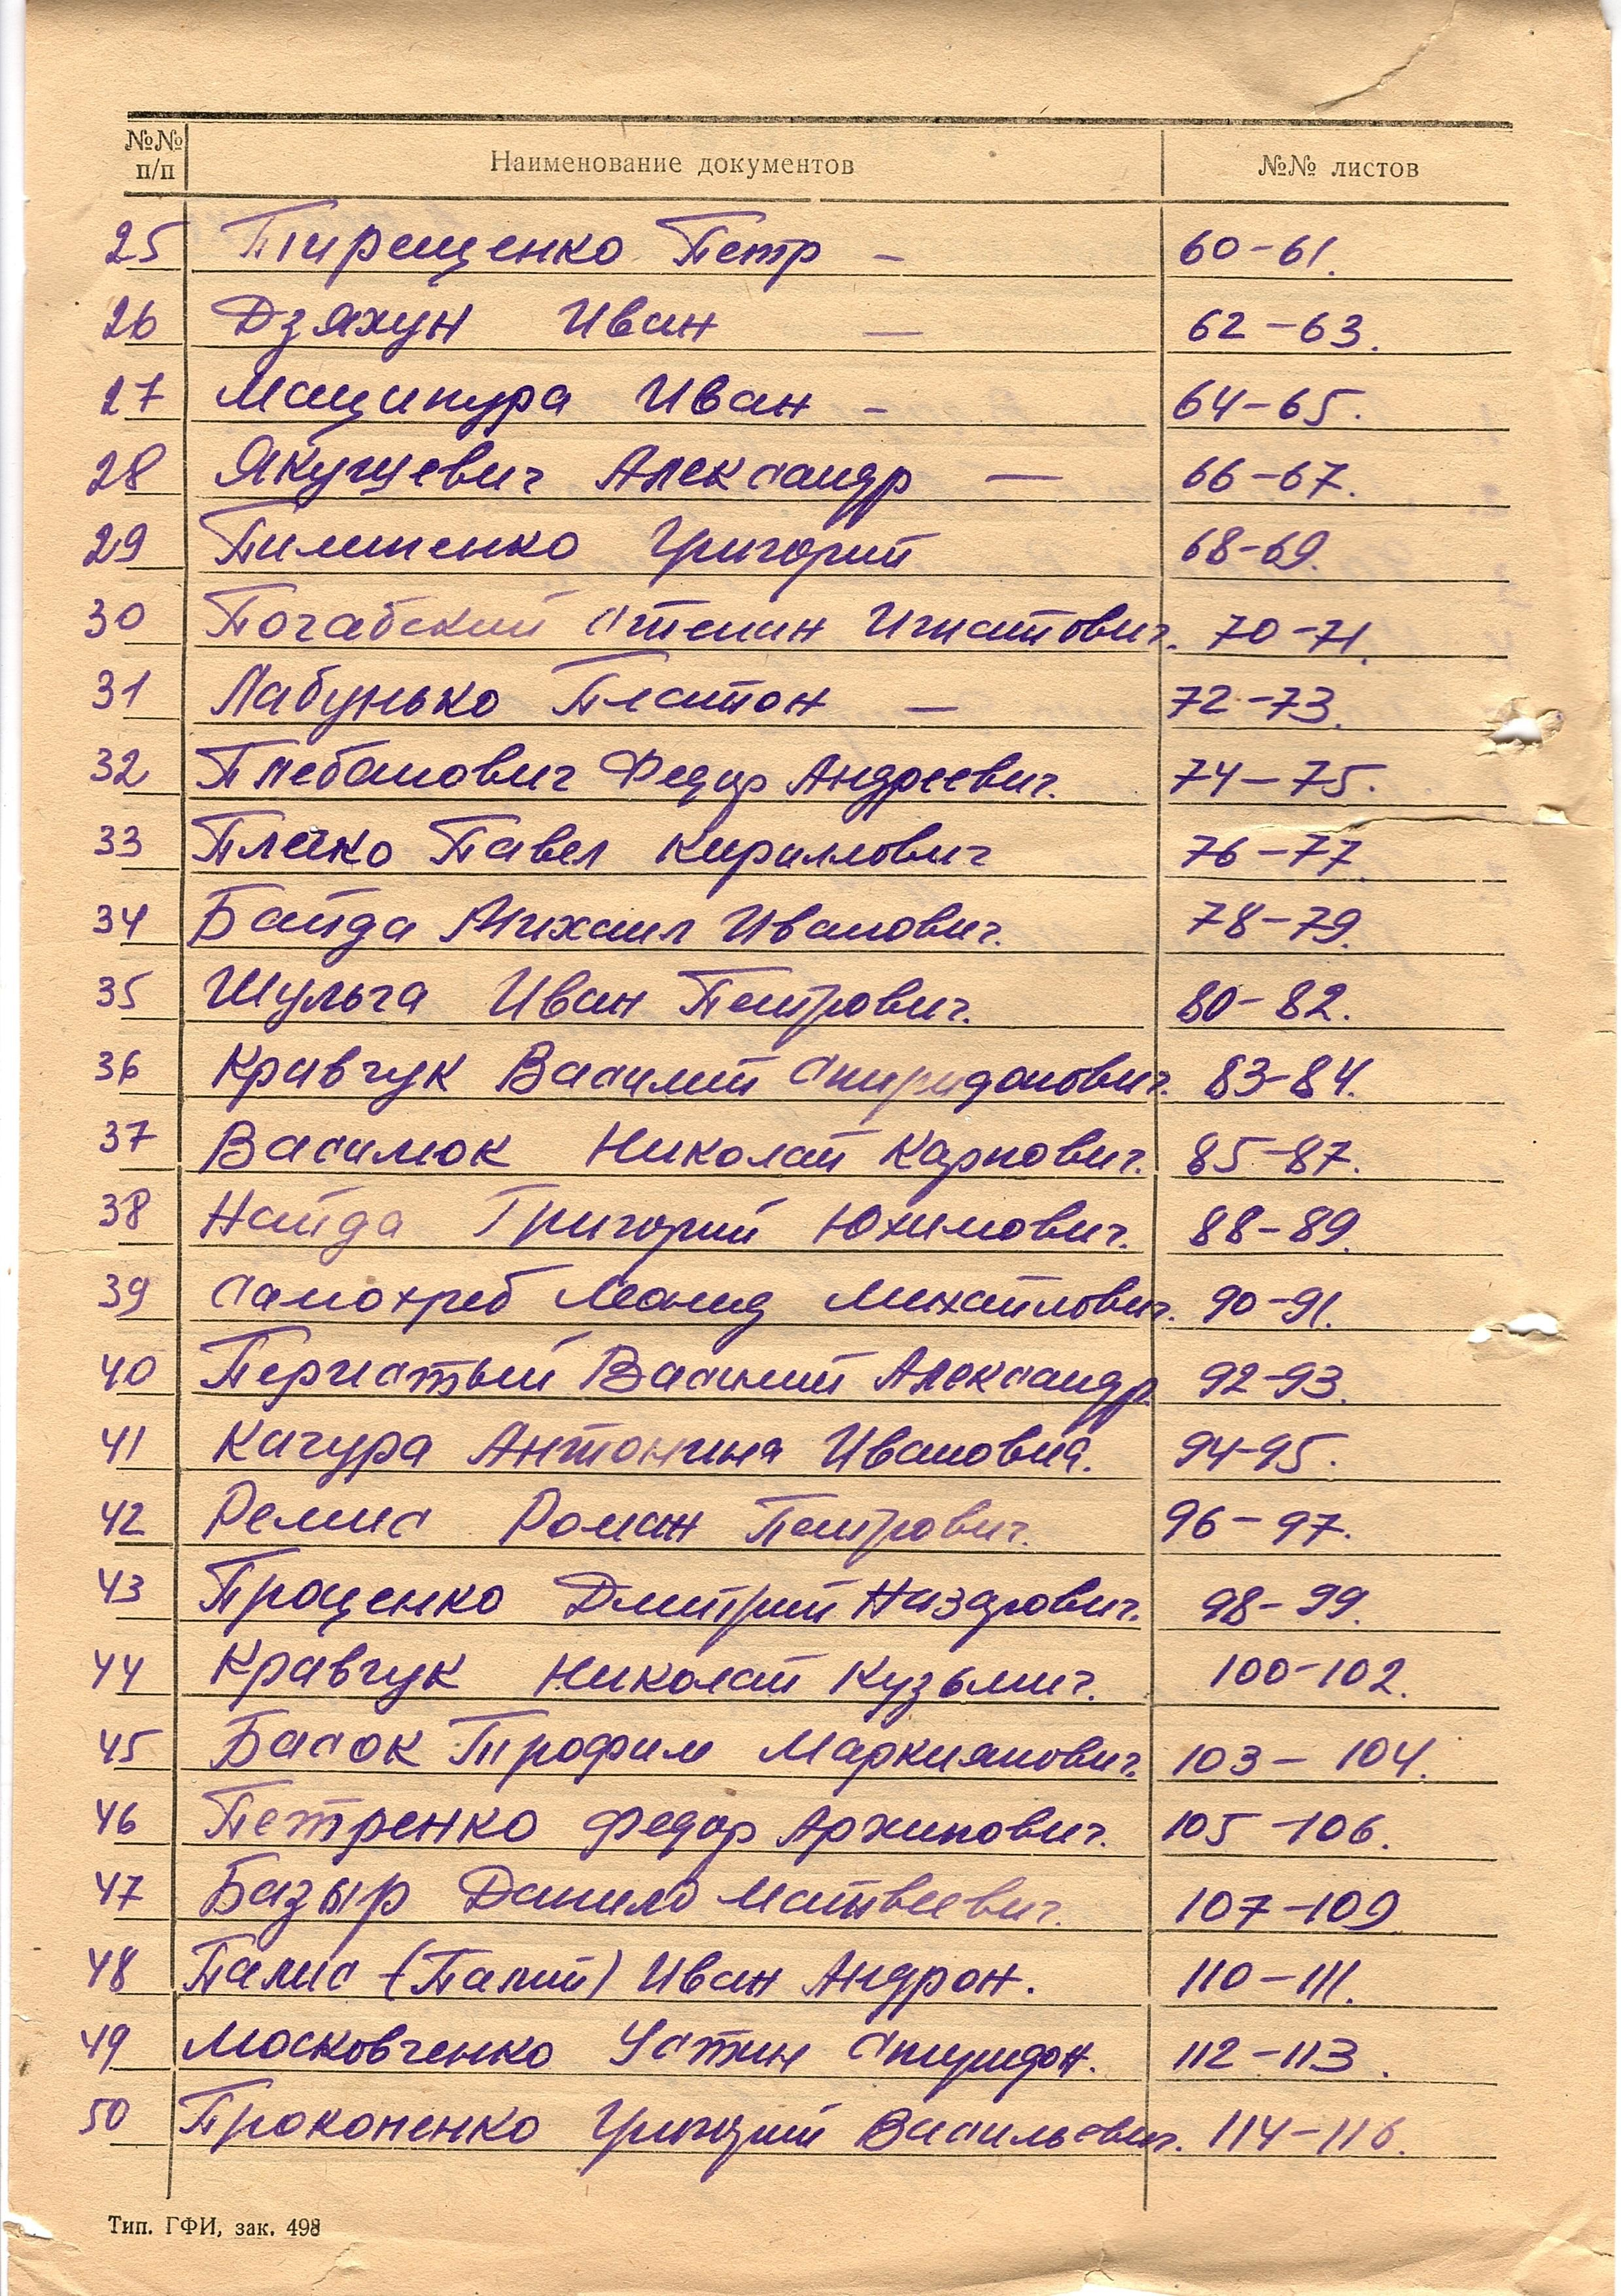 №№ п/п Наименование документов №№ листов
25 Тирещенко Петр — 60-61.
26 Дзяхун Иван — 62-63.
27 Маципура Иван — 64-65.
28 Якушевич Александр — 66-67.
29 Пилипенко Григорий 68-69.
30 Почабский Степан Игнатович. 70-71.
31 Лабунько Платон — 72-73.
32 Плебанович Федор Андреевич. 74-75.
33 Плечко Павел Кириллович 76-77
34 Байда Михаил Иванович. 78-79.
35 Шульга Иван Петрович. 80-82.
36 Кравчук Василий Спиридонович. 83-84.
37 Василюк Николай Карпович. 85-87.
38 Найда Григорий Юхимович. 88-89.
39 Самохреб Леонид Михайлович. 90-91.
40 Перистый Василий Александр. 92-93.
41 Качура Антонина Ивановна. 94-95.
42 Релис Роман Петрович. 96-97.
43 Проценко Дмитрий Назарович. 98-99.
44 Кравчук Николай Кузьмич. 100-102.
45 Басок Трофим Маркиянович. 103-104.
46 Петренко Федор Архипович. 105-106.
47 Базыр Данило Матвеевич. 107-109
48 Палис (Папий) Иван Андрон. 110-111.
49 Московченко Устин Спиридон. 112-113.
50 Прокопенко Григорий Васильевич. 114-116.
Тип. ГФИ, зак. 498